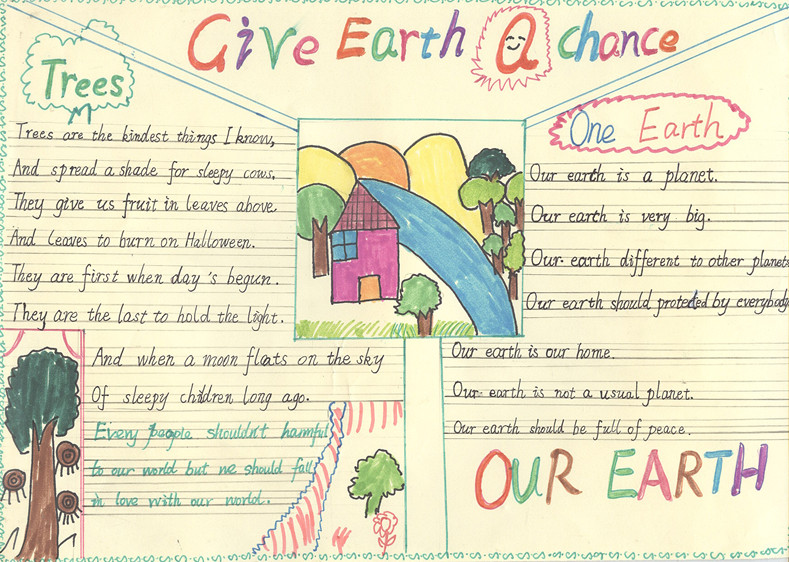 Give Earth a chance
Trees
Trees are the kindest things I know,
And spread a shade for sleepy cows.
They give us fruit in leaves above.
And leaves to burn on Halloween.
They are first when day's begun.
They are the last to hold the light.
And when a moon floats on the sky
Of sleepy children long ago.
Every people shouldn't harmful
to our world but we should fall
in love with our world.
One Earth
Our earth is a planet.
Our earth is very big.
Our earth different to other planets
Our earth should protected by everybody
Our earth is our home.
Our earth is not a usual planet.
Our earth should be full of peace.
OUR EARTH